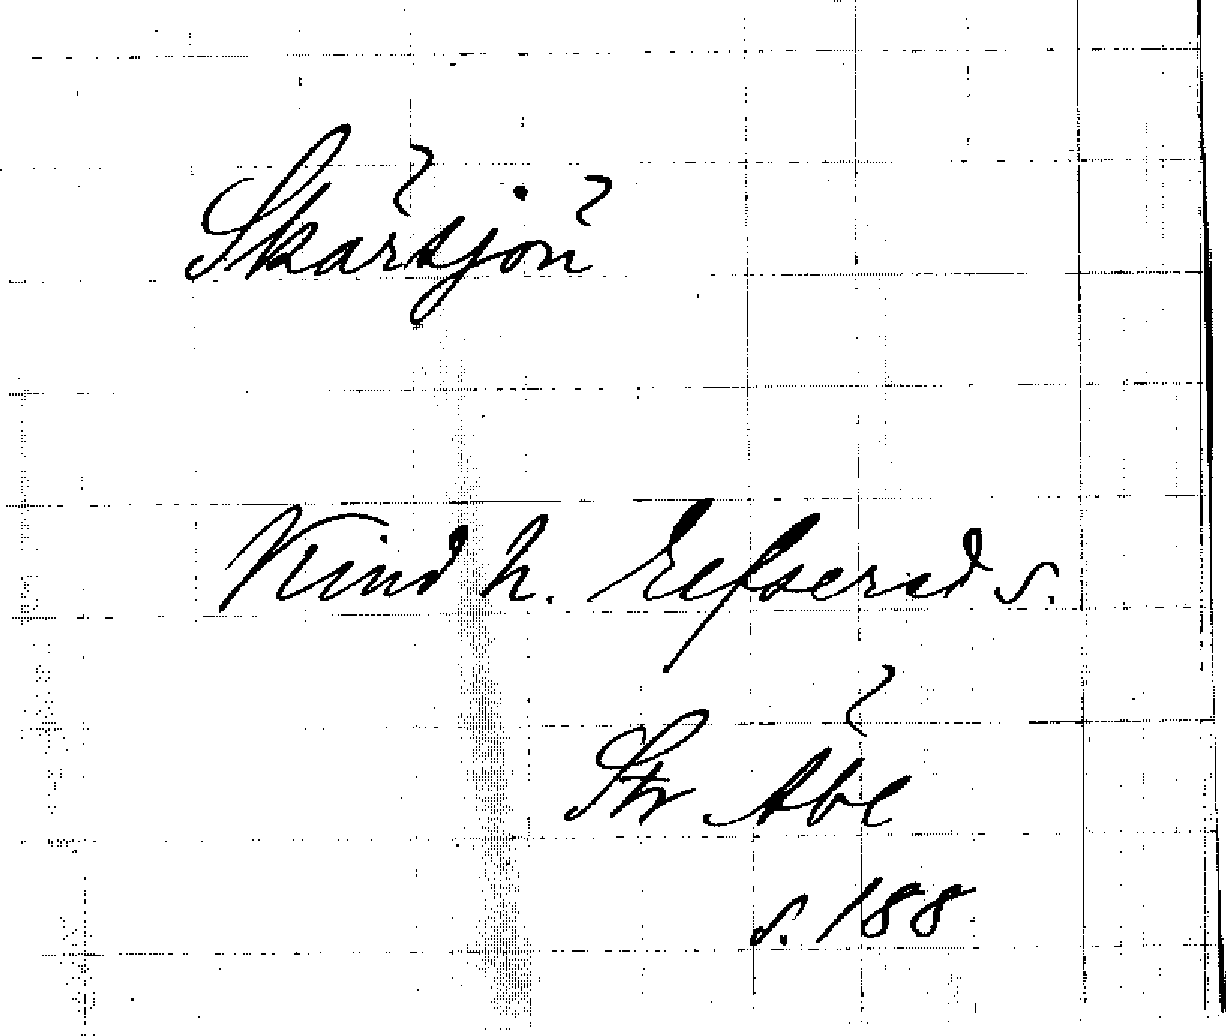 Skärsjön
Kind h. Elfsered s.
Str Äbl
s. 188